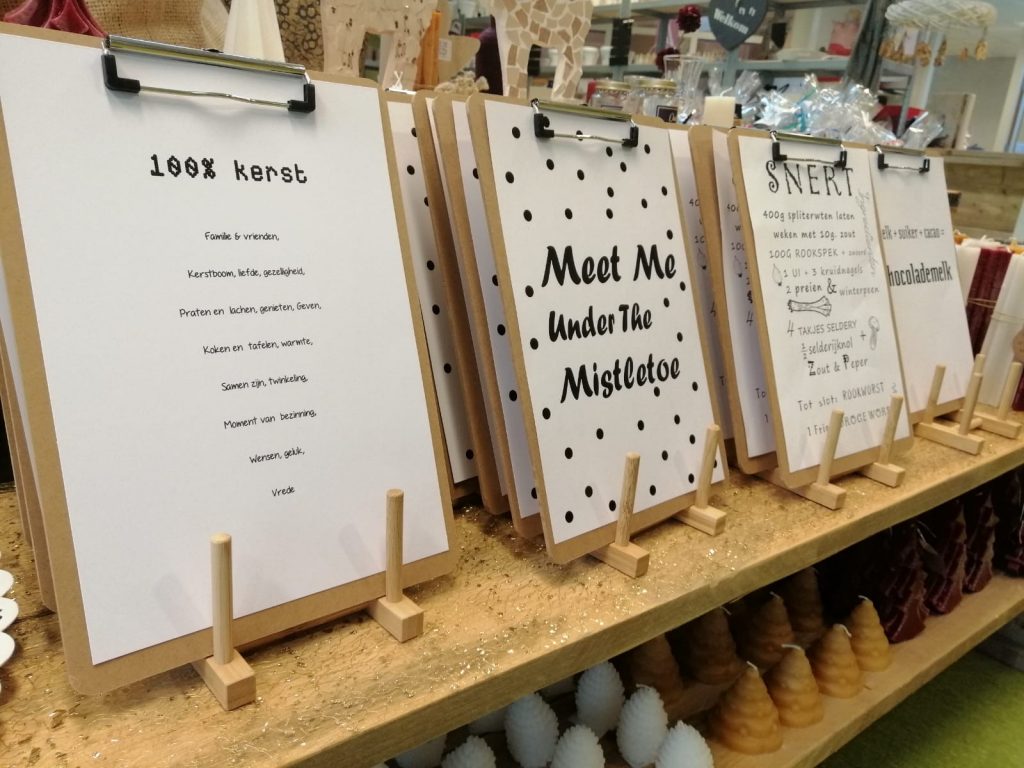 100% kerst
Familie & vrienden,
Kerstboom, liefde, gezelligheid,
Praten en lachen, genieten, Geven,
Koken en tafelen, warmte,
Samen zijn, twinkeling,
Moment van bezinning,
Wensen, geluk,
Vrede
Meet Me
Under The
Mistletoe
SNERT
400g spliterwten laten
weken met 10g. zout
100G ROOKSPEK +
1 UI + 3 kruidnagels
2 preien & winterpeen
4 TAKJES SELDERY
½ selderijknol +
Zout & Peper
Tot slot: ROOKWORST
elk + suiker + cacao =
hocolademelk
Welkom